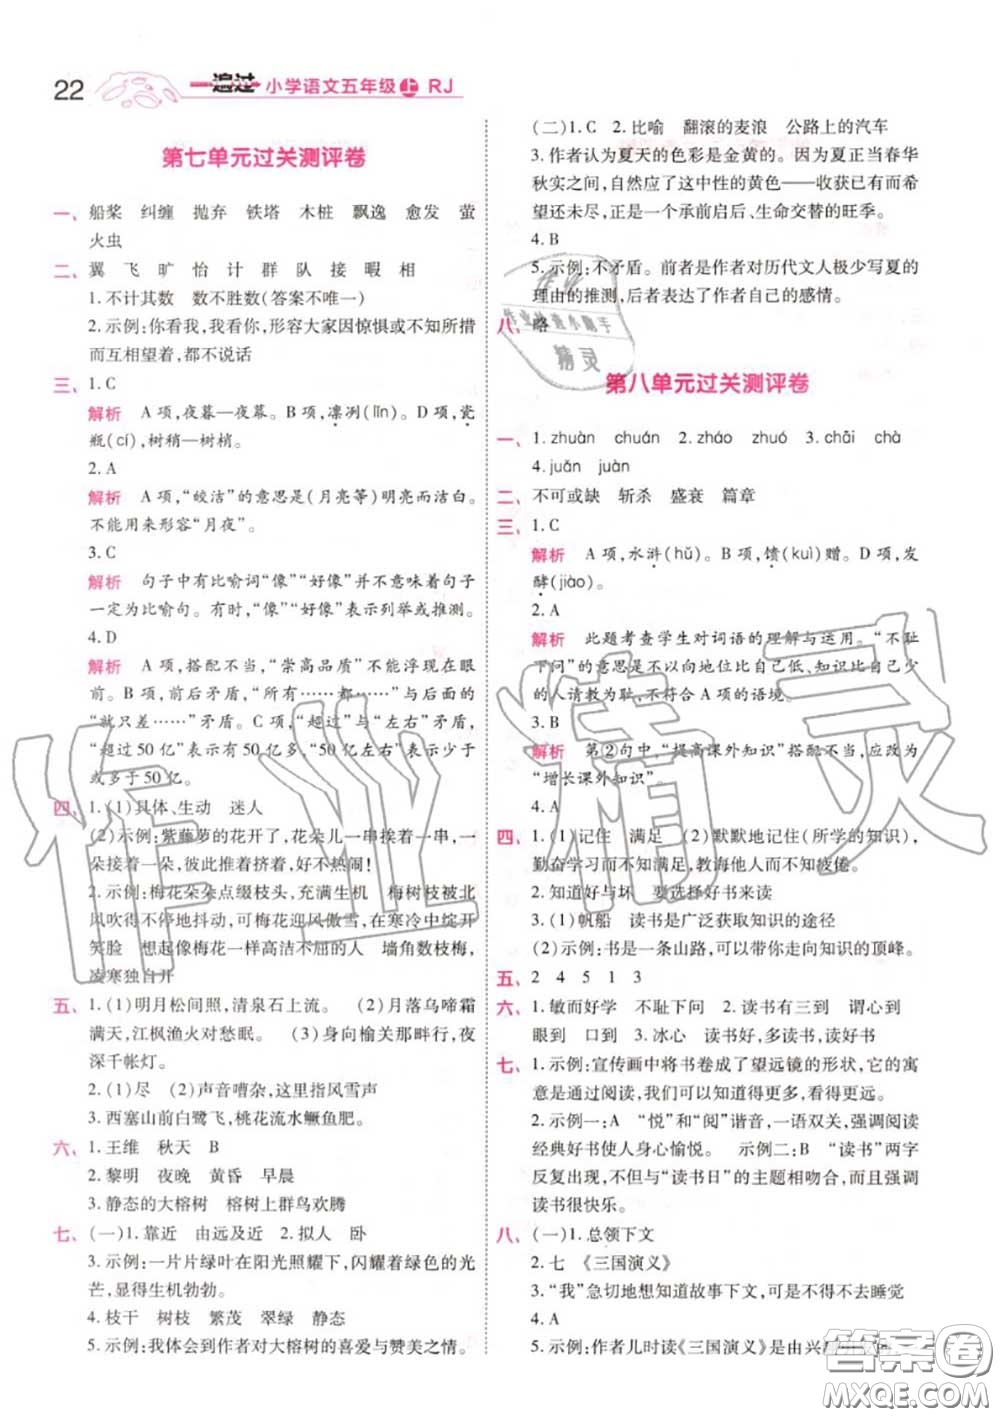 22 一遍过 小学语文五年级 上 RJ
第七单元过关测评卷
一、船桨 纠缠 抛弃 铁塔 木桩 飘逸 愈发 萤
火虫
二、翼 飞 旷 怡 计 群 队 接 暇 相
1.不计其数 数不胜数(答案不唯一)
2.示例:你看我,我看你,形容大家因惊惧或不知所措
而互相望着,都不说话
三、1.C
解析 A项,夜暮—夜幕。B项,凛冽(lǐn)。D项,瓷
瓶(cí),树稍—树梢。
2.A
解析 A项,“皎洁”的意思是(月亮等)明亮而洁白。
不能用来形容“月夜”。
3.C
解析 句子中有比喻词“像”“好像”并不意味着句子
一定为比喻句。有时,“像”“好像”表示列举或推测。
4.D
解析 A项,搭配不当,“崇高品质”不能浮现在眼
前。B项,前后矛盾,“所有……都……”与后面的
“就只差……”矛盾。C项,“超过”与“左右”矛盾,
“超过50亿”表示有50亿多,“50亿左右”表示少于
或多于50亿。
四、1.(1)具体、生动 迷人
(2)示例:紫藤萝的花开了,花朵儿一串挨着一串,一
朵接着一朵,彼此推着挤着,好不热闹!
2.示例:梅花朵朵点缀枝头,充满生机 梅树枝被北
风吹得不停地抖动,可梅花迎风傲雪,在寒冷中绽开
笑脸 想起像梅花一样高洁不屈的人 墙角数枝梅,
凌寒独自开
五、1.(1)明月松间照,清泉石上流。 (2)月落乌啼霜
满天,江枫渔火对愁眠。 (3)身向榆关那畔行,夜
深千帐灯。
2.(1)尽 (2)声音嘈杂,这里指风雪声
3.西塞山前白鹭飞,桃花流水鳜鱼肥。
六、1.王维 秋天 B
2.黎明 夜晚 黄昏 早晨
3.静态的大榕树 榕树上群鸟欢腾
七、(一)1.靠近 由远及近 2.拟人 卧
3.示例:一片片绿叶在阳光照耀下,闪耀着绿色的光
芒,显得生机勃勃。
4.枝干 树枝 繁茂 翠绿 静态
5.示例:我体会到作者对大榕树的喜爱与赞美之情。
(二)1.C 2.比喻 翻滚的麦浪 公路上的汽车
3.作者认为夏天的色彩是金黄的。因为夏正当春华
秋实之间,自然应了这中性的黄色——收获已有而希
望还未尽,正是一个承前启后、生命交替的旺季。
4.B
5.示例:不矛盾。前者是作者对历代文人极少写夏的
理由的推测,后者表达了作者自己的感情。
八、略
第八单元过关测评卷
一、1.zhuàn chuán 2.zháo zhuó 3.chāi chà
4.juǎn juàn
二、不可或缺 斩杀 盛衰 篇章
三、1.C
解析 A项,水浒(hǔ)。B项,馈(kuì)赠。D项,发
酵(jiào)。
2.A
解析 此题考查学生对词语的理解与运用。“不耻
下问”的意思是不以向地位比自己低、知识比自己少
的人请教为耻,不符合A项的语境。
3.B
解析 第②句中,“提高课外知识”搭配不当,应改为
“增长课外知识”。
4.A
四、1.(1)记住 满足 (2)默默地记住(所学的知识),
勤奋学习而不知满足,教诲他人而不知疲倦。
2.知道好与坏 要选择好书来读
3.(1)帆船 读书是广泛获取知识的途径
(2)示例:书是一条山路,可以带你走向知识的顶峰。
五、2 4 5 1 3
六、1.敏而好学 不耻下问 2.读书有三到 谓心到
眼到 口到 3.冰心 读书好,多读书,读好书
七、1.示例:宣传画中将书卷成了望远镜的形状,它的寓
意是通过阅读,我们可以知道得更多、看得更远。
2.示例一:A “悦”和“阅”谐音,一语双关,强调阅读
经典好书使人身心愉悦。 示例二:B “读书”两字
反复出现,不但与“读书日”的主题相吻合,而且强调
读书很快乐。
八、(一)1.总领下文
2.七 《三国演义》
3.“我”急切地想知道故事下文,可是不得不去睡觉
4.A
5.示例:作者儿时读《三国演义》是由兴
作业
作业检查小助手
精灵
作业精灵
答案圈
MXQE.COM